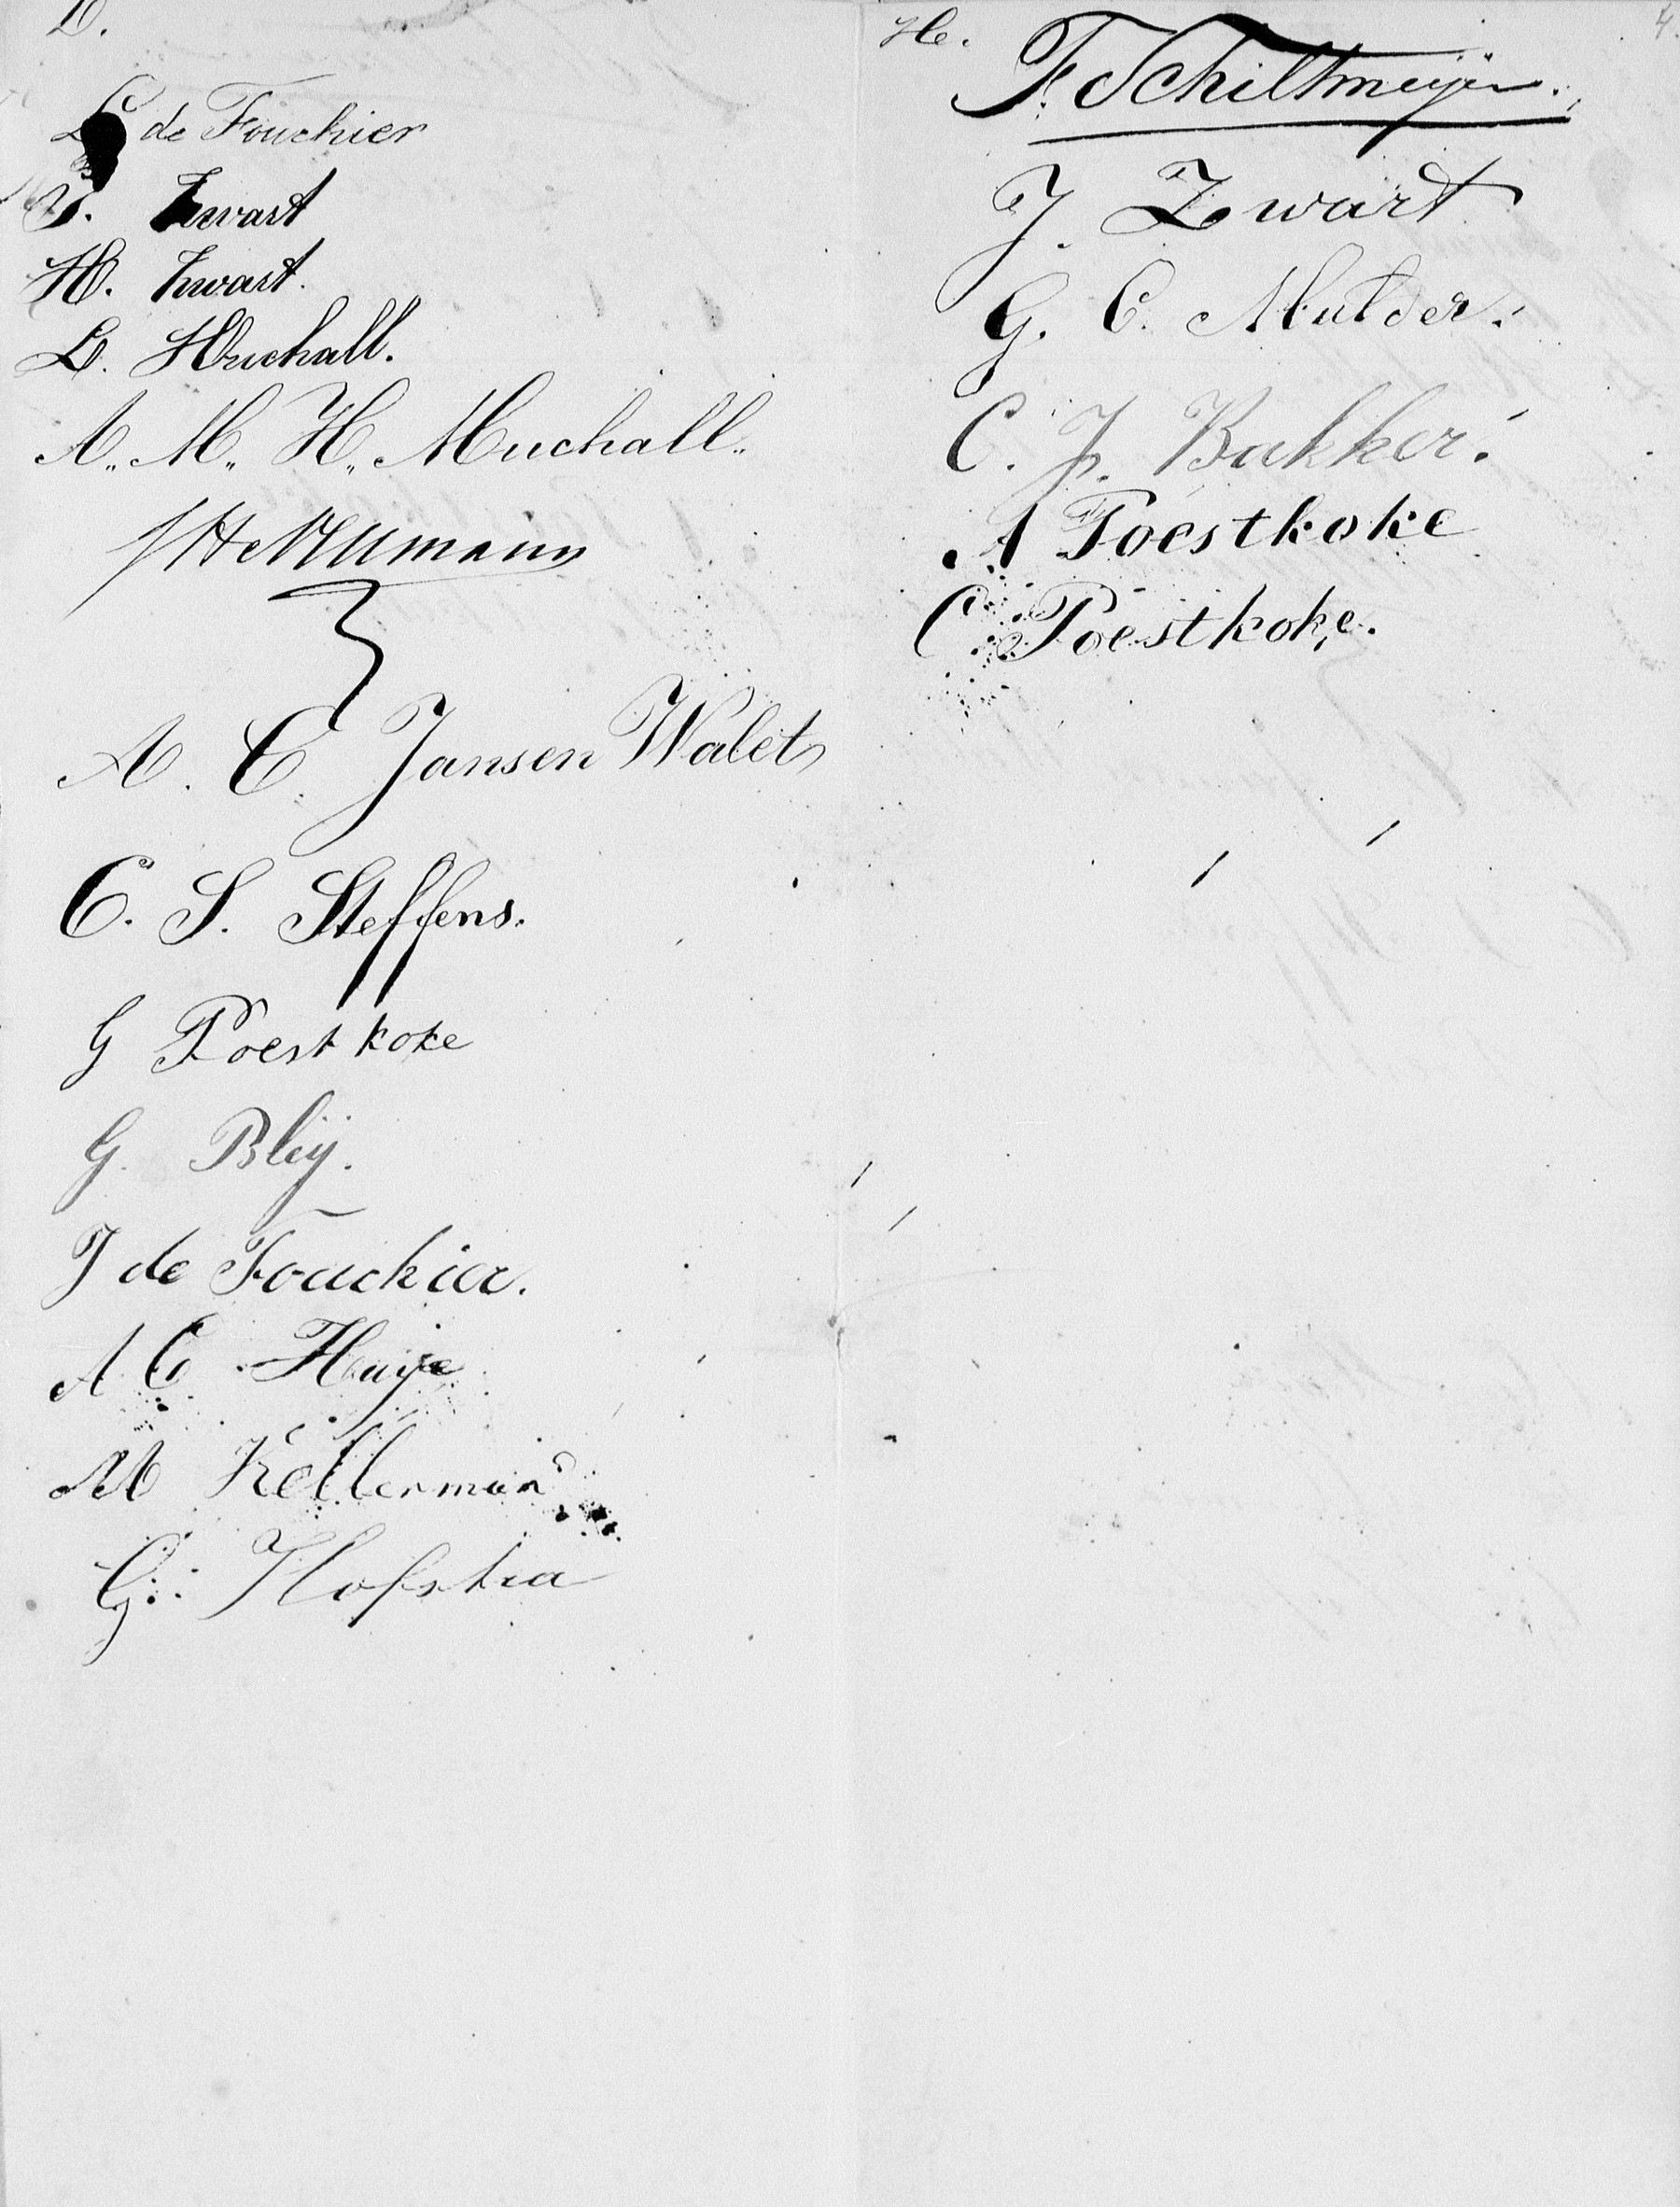 D.
L de Fouchier
J. Zwart
H. Zwart.
L. Muchall.
A. M. H. Muchall.
A. C. Jansen Walet
C. S. Steffens.
G Poestkoke
G. Bleij.
J de Fouchier.
A C Huije
M Kellerman
G. Hofstra
He.
4.
F. Schiltmeijer.
J. Zwart
G. C. Mulder.
C. J. Bakker.
A Poestkoke
C Poestkoke.